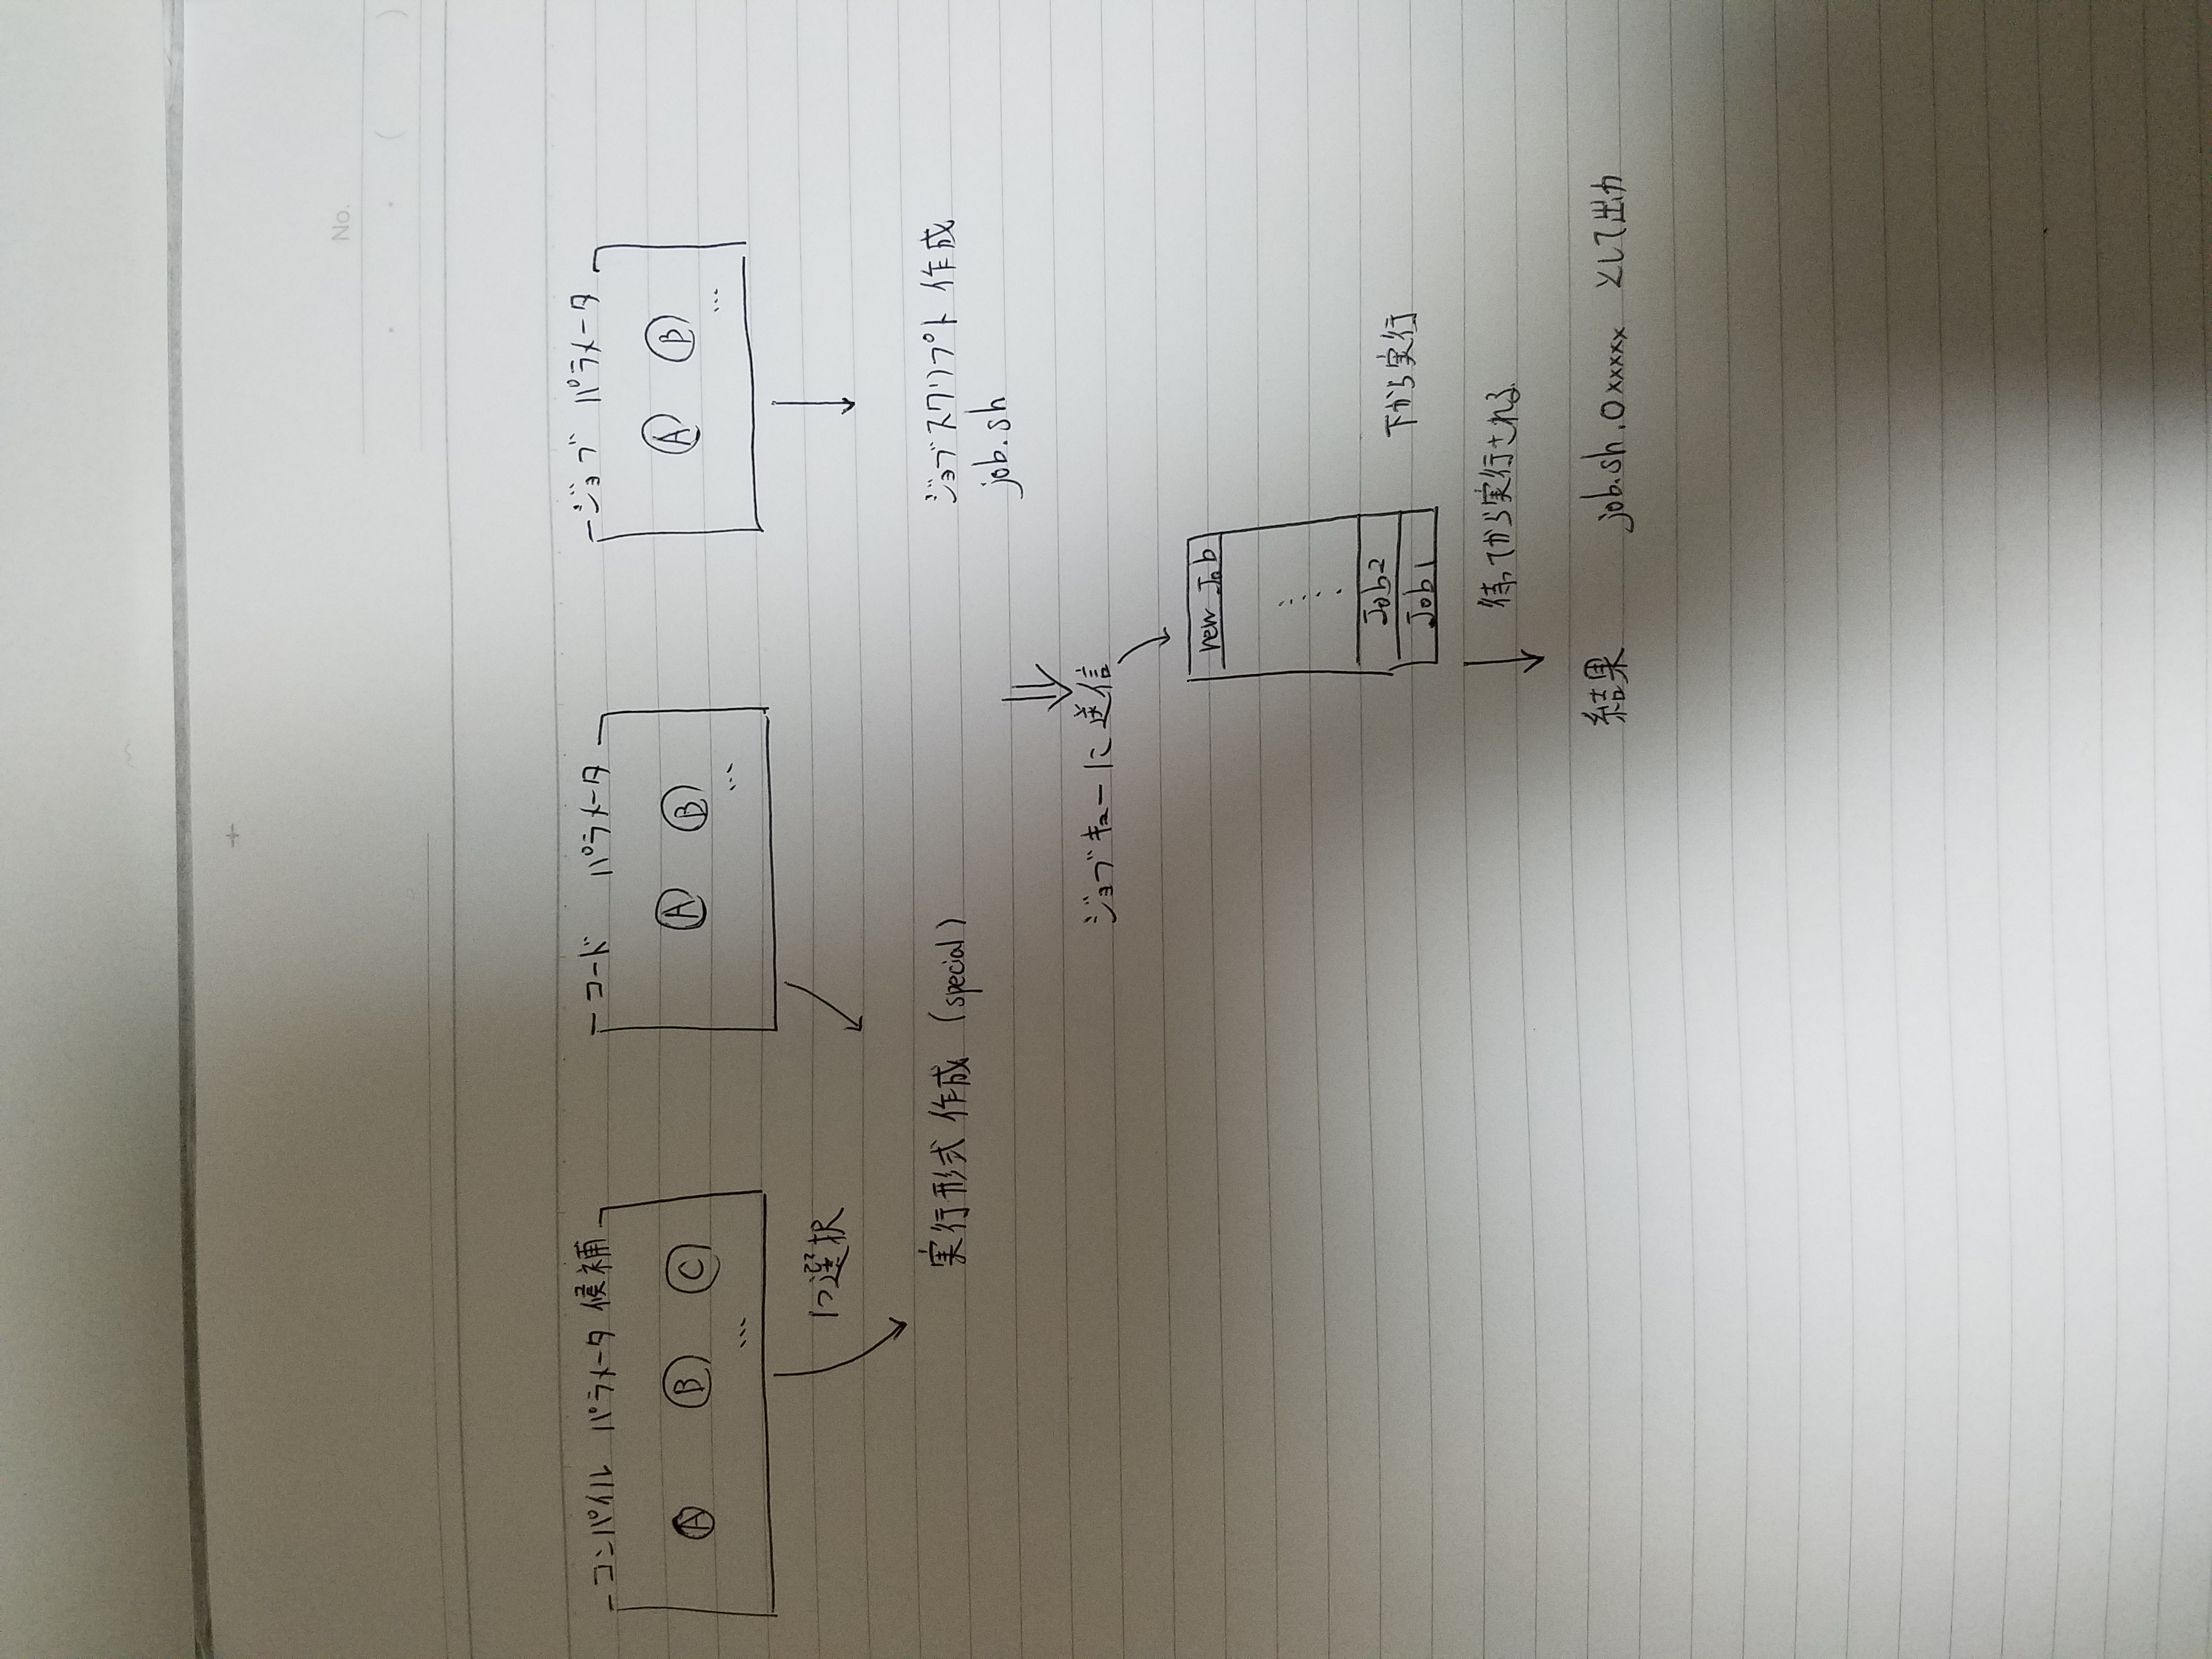 No.
コンパイル パラメータ 候補
コード パラメータ
ジョブ パラメータ
A B C
...
A B
...
A B
...
1つ選択
実行形式 作成 (special)
ジョブスクリプト 作成
job.sh
ジョブキューに送信
new Job
Job2
Job1
下から実行
待ってから実行される
結果 job.sh.0xxxxx として出力